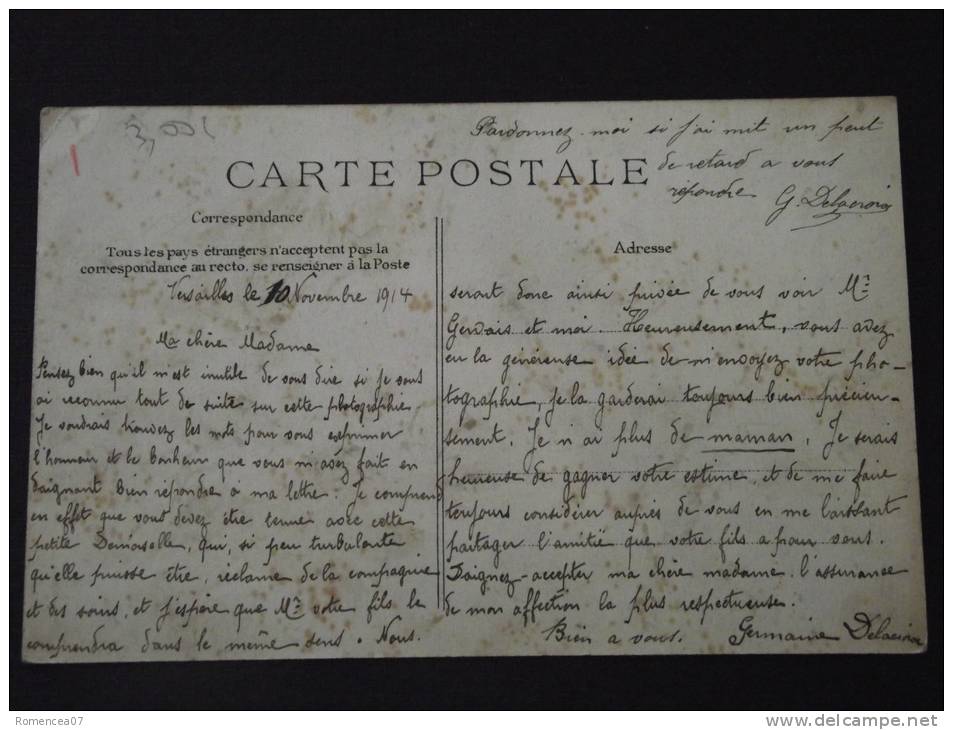 3,00€
Pardonnez-moi si j'ai mit un peut
de retard a vous
répondre
G. Delacroix
CARTE POSTALE
Correspondance
Tous les pays étrangers n'acceptent pas la
correspondance au recto, se renseigner à la Poste
Adresse
Versailles le 10 Novembre 1914
Ma chère Madame
Pensez bien qu'il m'est inutile de vous dire si je vous
ai reconnu tout de suite sur cette photographie.
Je voudrais trouvez les mots pour vous exprimer
l'honneur et le bonheur que vous m'avez fait en
daignant bien répondre à ma lettre. Je comprend
en effet que vous devez être tenue avec cette
petite Demoiselle, qui, si peu turbulente
qu'elle puisse être, réclame de la compagnie
et des soins, et j'espère que Mr votre fils le
comprendra dans le même sens. Nous.
seront donc ainsi privée de vous voir Mr
Gervais et moi. Heureusement, vous avez
eu la généreuse idée de m'envoyez votre pho-
tographie, je la garderai toujours bien précieu-
sement. Je n'ai plus de maman, Je serais
heureuse de gagner votre estime, et de me faire
toujours considérer auprès de vous en me laissant
partager l'amitié que votre fils a pour vous.
Daignez-accepter ma chère madame l'assurance
de mon affection la plus respectueuse.
Bien a vous. Germaine Delacroix
Romencea07
www.delcampe.net